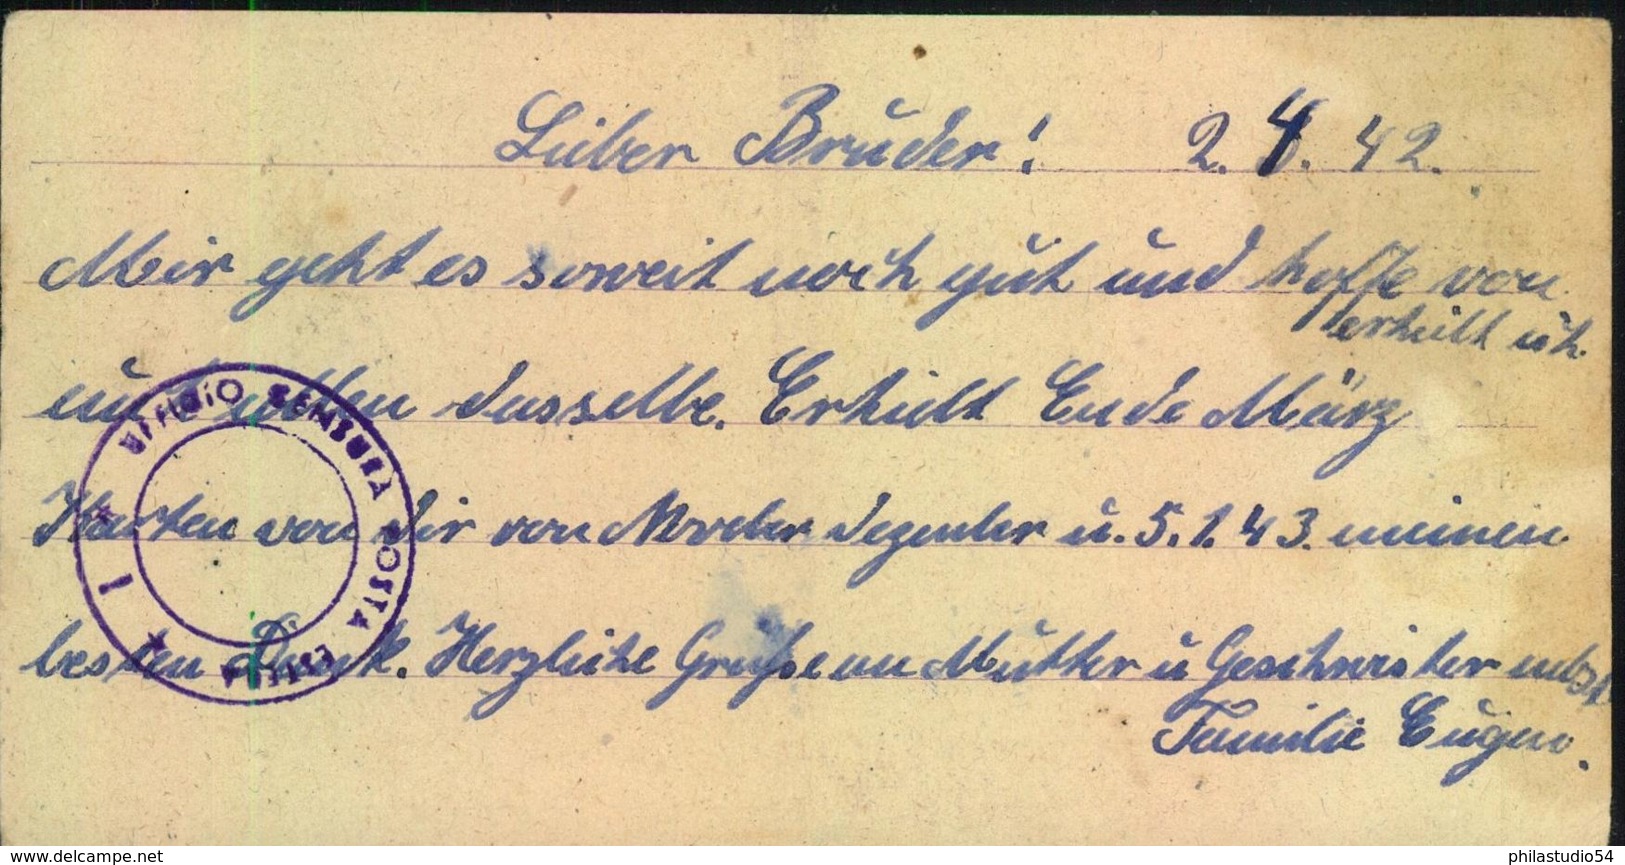 Lieber Bruder! 2. 4. 42.
Mir geht es soweit noch gut und hoffe von
erhielt ich
euch allen dasselbe. Erhielt Ende März
Karten von dir von November dezember u. 5.1.43. meinen
besten Dank. Herzliche Grüße an Mutter u Geschwister nebst
Familie Eugen.
UFFICIO CENSURA POSTA ESTERA
1
philastudio54
www.delcampe.net